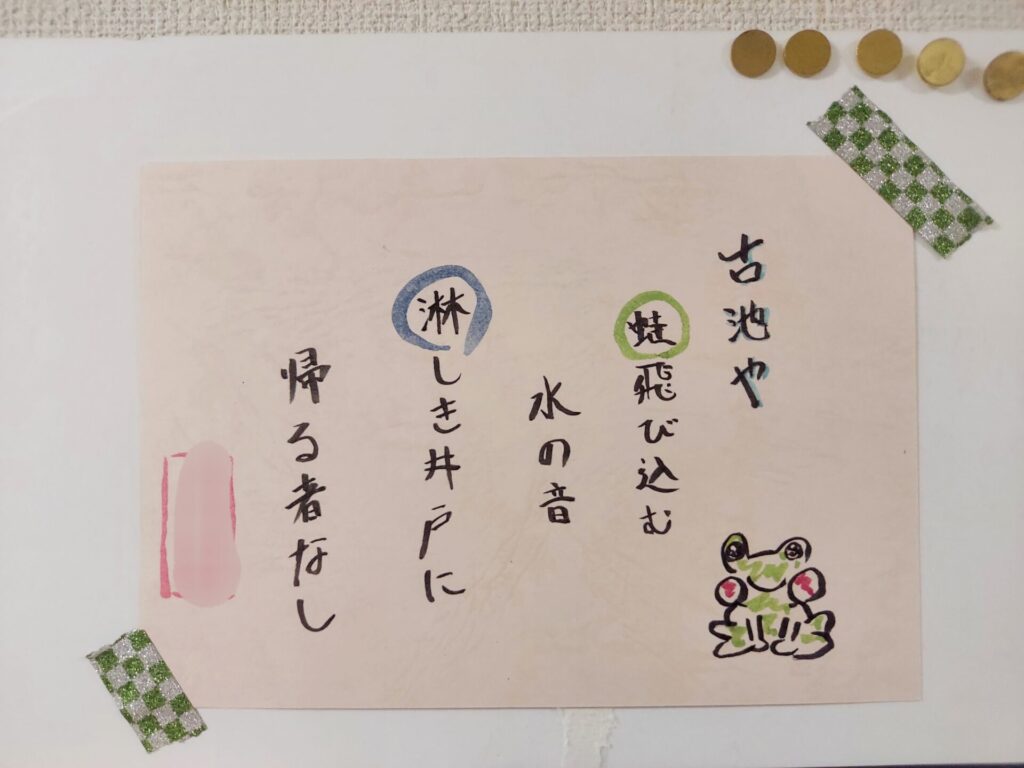 古池や
蛙飛び込む
水の音
淋しき井戸に
帰る者なし